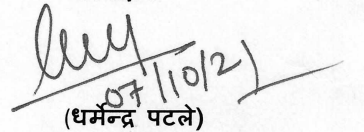 07/10/21
(धर्मेन्द्र पटले)